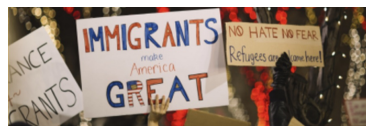 ANCE
GRANTS
IMMIGRANTS
make
America
GREAT
NO HATE NO FEAR
Refugees are come here!